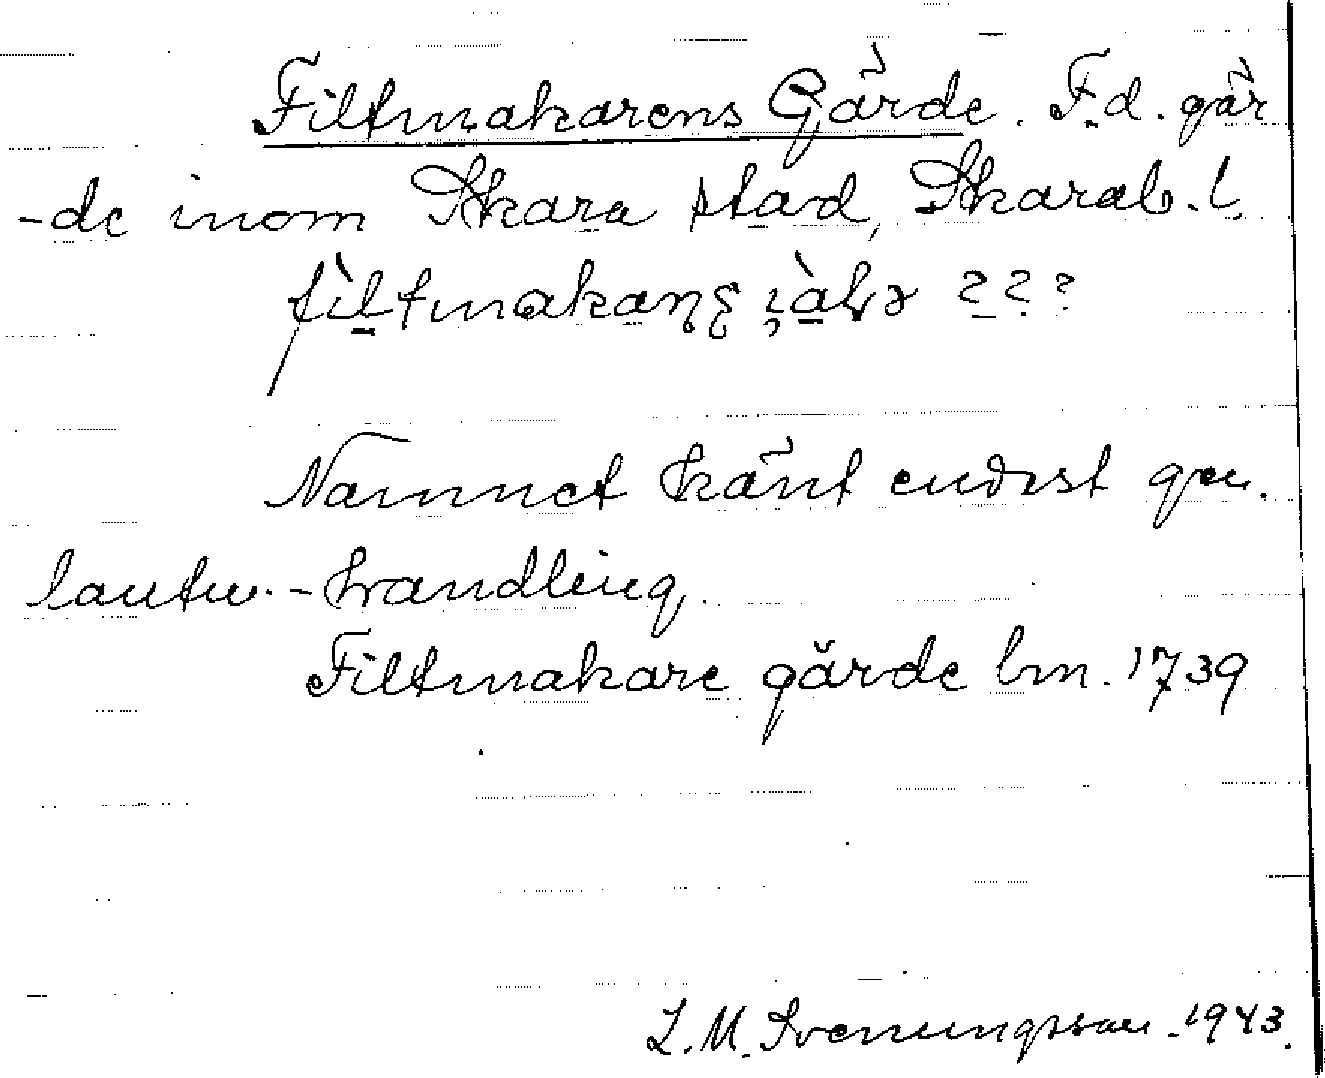 Filtmakarens Gärde. F.d. gär
-de inom Skara stad, Skarab. l.
???
Namnet känt endast gen.
lantm.-handling.
Filtmakare gärde lm. 1739
L. M. Svenungsson. 1943.